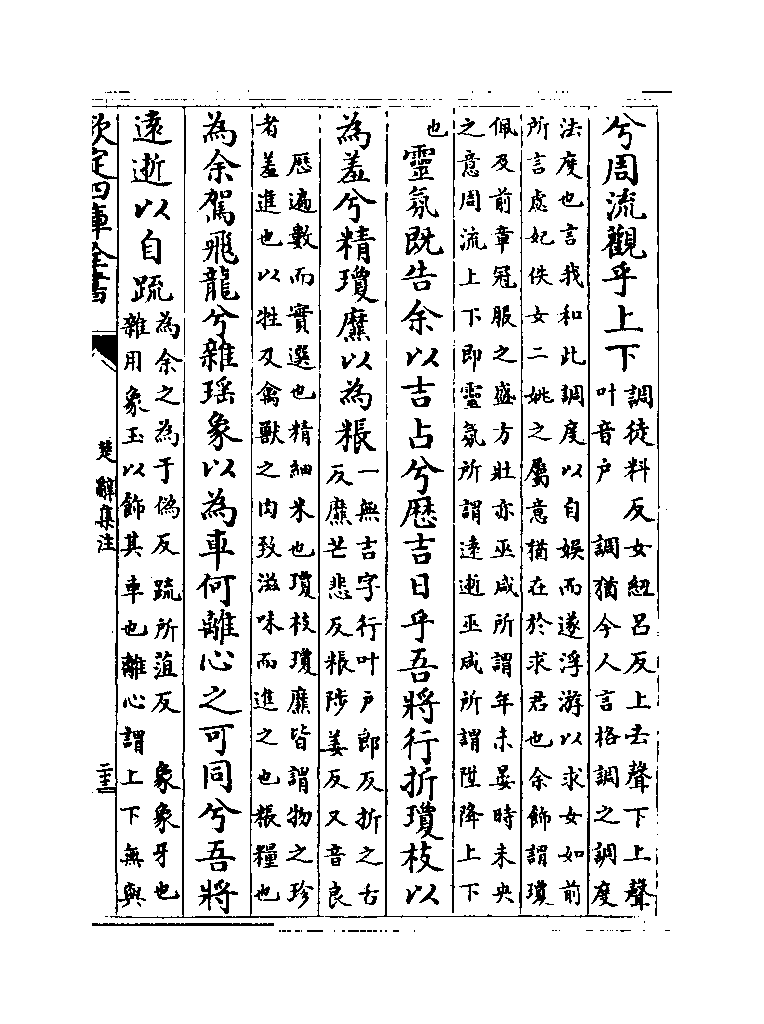 兮周流觀乎上下
調徒料反女紐呂反上去聲下上聲
叶音户 調猶今人言格調之調度
法度也言我和此調度以自娛而遂浮游以求女如前
所言虙妃佚女二姚之屬意猶在於求君也余飾謂瓊
佩及前章冠服之盛方壯亦巫咸所謂年未晏時未央
之意周流上下即靈氛所謂逺逝巫咸所謂陞降上下
也
靈氛既告余以吉占兮厯吉日乎吾將行折瓊枝以
為羞兮精瓊爢以為粻
一無吉字行叶户郎反折之舌
反爢芒悲反粻陟姜反又音良
厯遍數而實選也精細米也瓊枝瓊爢皆謂物之珍
者羞進也以牲及禽獸之肉致滋味而進之也粻糧也
為余駕飛龍兮雜瑶象以為車何離心之可同兮吾將
逺逝以自疏
為余之為于偽反 疏所葅反 象象牙也
雜用象玉以飾其車也離心謂上下無與
欽定四庫全書
楚辭集注
二十三